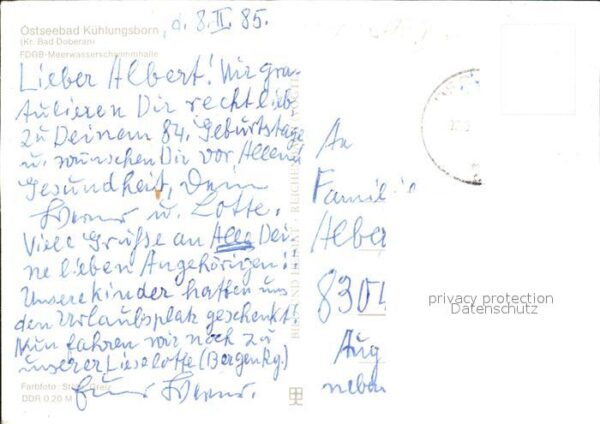 Ostseebad Kühlungsborn, d. 8.II.85.
(Kr. Bad Doberan)
FDGB-Meerwasserschwimmhalle
Lieber Albert! Wir gra-
tulieren Dir recht lieb
zu Deinem 84. Geburtstage
u. wünschen Dir vor Allem
Gesundheit, Dein
Werner u. Lotte.
Viele Grüße an Alle Dei-
ne lieben Angehörigen!
Unsere Kinder hatten uns
den Urlaubsplatz geschenkt.
Nun fahren wir noch zu
unserer Lieselotte (Bergen Rg.)
Euer Werner.
Farbfoto:
DDR 0,20 M
BILD UND HEIMAT · REICHENBACH
An
Familie
Alber
8301
Aug
neben
privacy protection
Datenschutz